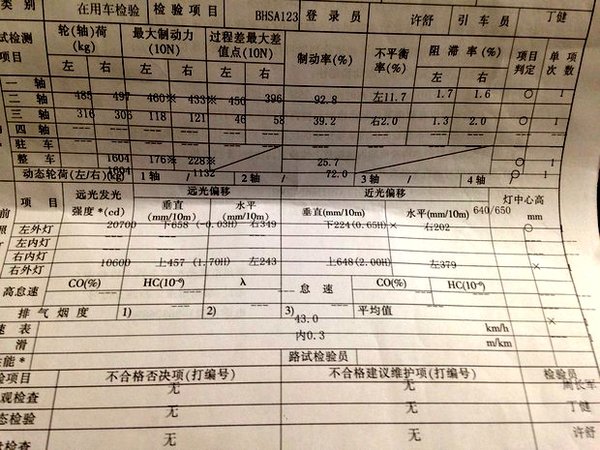 类 别 在用车检验 检 验 项 目 BHSA123 登 录 员 许舒 引 车 员 丁健
试检测 轮(轴)荷(kg) 最大制动力(10N) 过程差最大差值点(10N) 制动率(%) 不平衡率(%) 阻 滞 率(%) 项目判定 单项次数
项目 左 右 左 右 左 右 左 右
一 轴 485 497 460※ 433※ 456 396 92.8 左11.7 1.7 1.6 ○ 1
二 轴 316 305 118 121 46 58 39.2 右2.0 1.3 2.0 ○ 1
三 轴
四 轴
驻 车 1604 176※ 228※ 25.7 ○ 1
整 车 1132 72.0 ○ 1
动态轮荷(左/右)(kg) 1轴 / 2轴 / 3轴 / 4轴 /
项 目 远光发光强度*(cd) 远光偏移 近光偏移 灯中心高 mm
垂直(mm/10m) 水平(mm/10m) 垂直(mm/10m) 水平(mm/10m) 640/650
左外灯 20700 下658 (-0.03H) 右349 下224(0.65H)× 右202
左内灯
右内灯
右外灯 10600 上457 (1.70H) 左243 上648(2.00H) 左379 ×
高怠速 CO(%) HC(10⁻⁶) λ 怠 速 CO(%) HC(10⁻⁶)
排 气 烟 度 1) 2) 3) 平均值
速 表 43.0 km/h ×
滑 内0.3 m/km
能* 路试检验员
检项目 不合格否决项(打编号) 不合格建议维护项(打编号) 检验员
观检查 无 无 周长军
态检验 无 无 丁健
检查 无 无 许舒